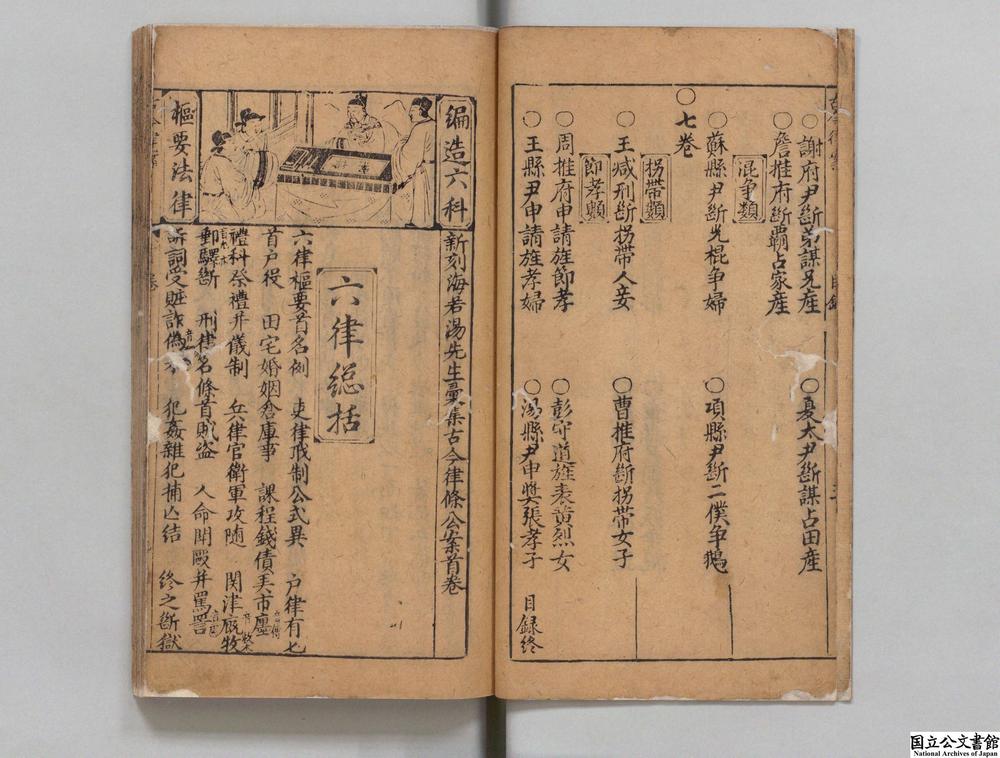 ○謝府尹斷弟謀兄産
○夏太尹斷謀占田産
○詹推府斷覇占家産
混争類
○蘇縣尹斷光棍争婦
○項縣尹斷二僕争鵝
○七卷
拐帶類
○王減刑斷拐帶人妾
○曹推府斷拐帶女子
節孝類
○周推府申請旌節孝
○彭守道旌表黄烈女
○王縣尹申請旌孝婦
○湯縣尹申獎張孝子
目録終
編造六科
樞要法律
新刻海若湯先生彚集古今律條公案首卷
六律総括
六律樞要首名例 吏律戒制公式異 户律有七
首户役 田宅婚姻倉庫事 課程錢債美市廛
禮科祭禮并儀制 兵律官衛軍攻随 関津厩牧
郵驛斷 刑律名條首賊盗 人命閗毆并罵詈
訴詞受賍詐偽 犯姦雜犯捕亾结 終之斷獄
国立公文書館
National Archives of Japan